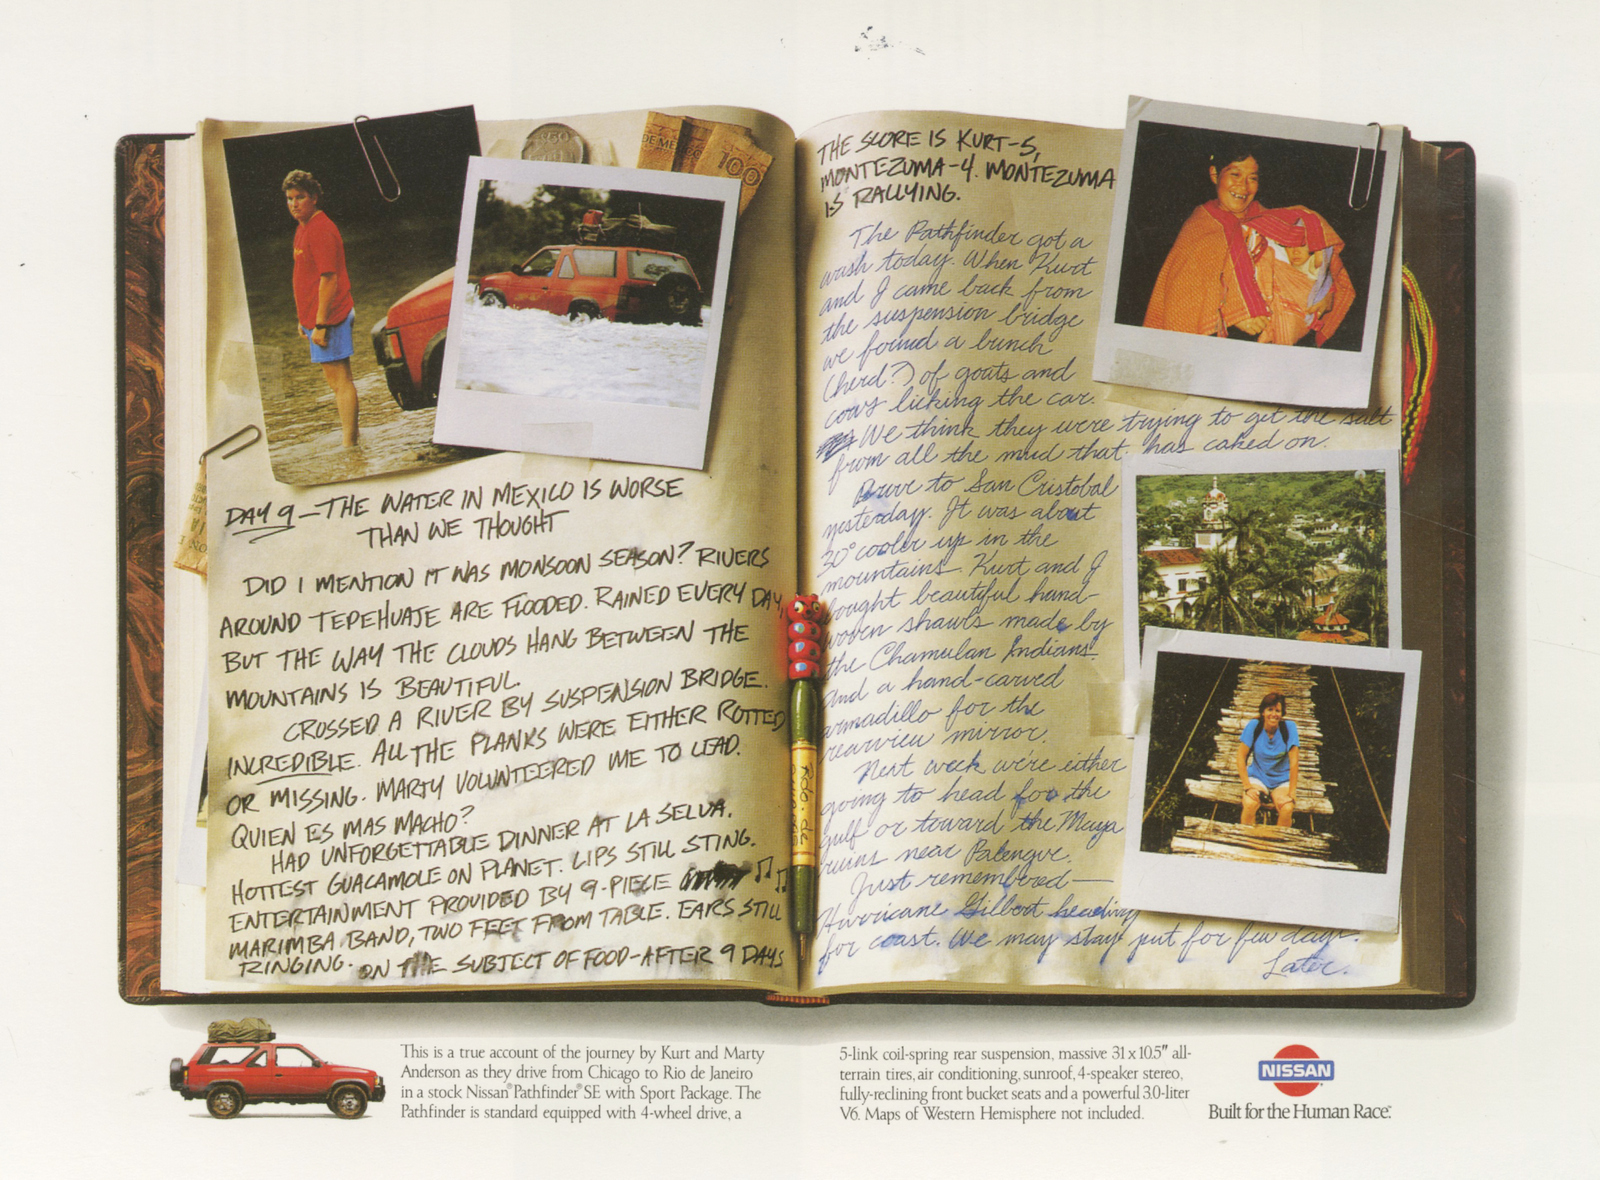 DE MEXICO
100
DAY 9—THE WATER IN MEXICO IS WORSE
THAN WE THOUGHT
DID I MENTION IT WAS MONSOON SEASON? RIVERS
AROUND TEPEHUAJE ARE FLOODED. RAINED EVERY DAY,
BUT THE WAY THE CLOUDS HANG BETWEEN THE
MOUNTAINS IS BEAUTIFUL.
CROSSED A RIVER BY SUSPENSION BRIDGE.
INCREDIBLE. ALL THE PLANKS WERE EITHER ROTTED
OR MISSING. MARTY VOLUNTEERED ME TO LEAD.
QUIEN ES MAS MACHO?
HAD UNFORGETTABLE DINNER AT LA SELVA.
HOTTEST GUACAMOLE ON PLANET. LIPS STILL STING.
ENTERTAINMENT PROVIDED BY 9-PIECE
MARIMBA BAND, TWO FEET FROM TABLE. EARS STILL
RINGING. ON THE SUBJECT OF FOOD-AFTER 9 DAYS
THE SCORE IS KURT-5,
MONTEZUMA-4. MONTEZUMA
IS RALLYING.
The Pathfinder got a
wash today. When Kurt
and I came back from
the suspension bridge
we found a bunch
(herd?) of goats and
cows licking the car.
We think they were trying to get the salt
from all the mud that has caked on.
Drive to San Cristobal
yesterday. It was about
30° cooler up in the
mountains. Kurt and I
bought beautiful hand-
woven shawls made by
the Chamulan Indians.
And a hand-carved
armadillo for the
rearview mirror.
Next week we're either
going to head for the
gulf or toward the Maya
ruins near Palenque.
Just remembered—
Hurricane Gilbert heading
for coast. We may stay put for few days.
Later.
This is a true account of the journey by Kurt and Marty
Anderson as they drive from Chicago to Rio de Janeiro
in a stock Nissan® Pathfinder® SE with Sport Package. The
Pathfinder is standard equipped with 4-wheel drive, a
5-link coil-spring rear suspension, massive 31 x 10.5" all-
terrain tires, air conditioning, sunroof, 4-speaker stereo,
fully-reclining front bucket seats and a powerful 3.0-liter
V6. Maps of Western Hemisphere not included.
NISSAN
Built for the Human Race.™